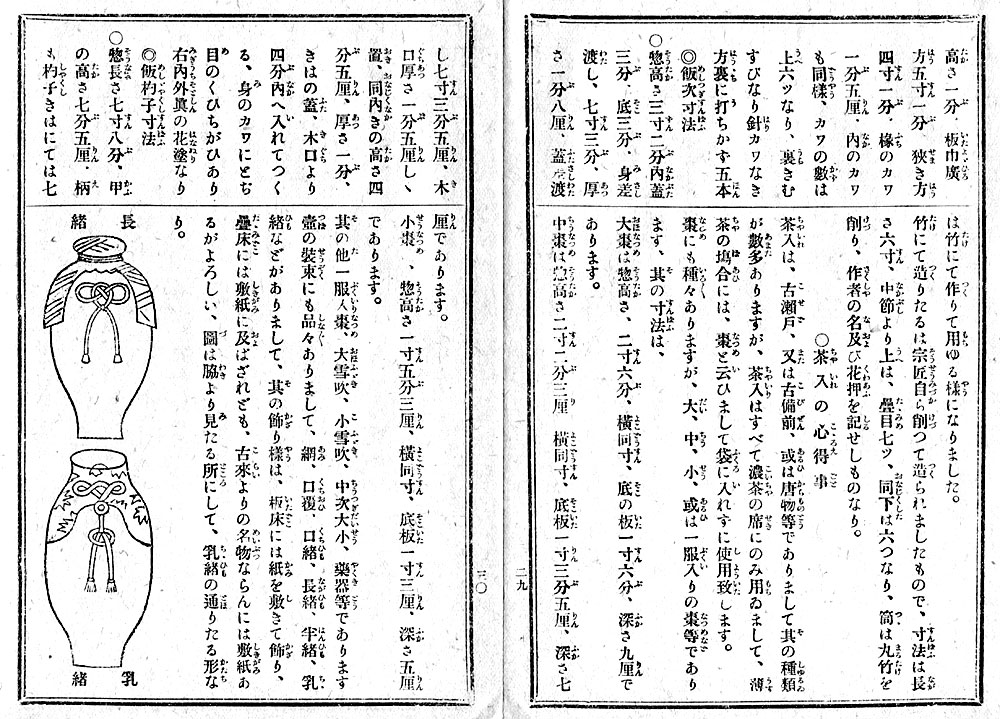 高さ一分、板巾廣
方五寸一分、狹き方
四寸一分、椽のカワ
一分五厘、内のカワ
も同樣、カワの數は
上六ツなり、裏きむ
すびなり針カワなき
方裏に打ちかず五本
◎飯次寸法
○惣高さ三寸二分内蓋
三分、底三分、身差
渡し、七寸三分、厚
さ一分八厘、蓋差渡
は竹にて作りて用ゆる樣になりました。
竹にて造りたるは宗匠自ら削つて造られましたもので、寸法は長
さ六寸、中節より上は、疊目七ツ、同下は六つなり、筒は丸竹を
削り、作者の名及び花押を記せしものなり。
○茶入の心得事
茶入は、古瀬戸、又は古備前、或は唐物等でありまして其の種類
が數多ありますが、茶入はすべて濃茶の席にのみ用ゐまして、薄
茶の塲合には、棗と云ひまして袋に入れずに使用致します。
棗にも種々ありますが、大、中、小、或は一服入りの棗等であり
ます、其の寸法は、
大棗は惣高さ、二寸六分、橫同寸、底の板一寸六分、深さ九厘で
あります。
中棗は惣高さ二寸二分三厘 橫同寸、底板一寸三分五厘、深さ七
二九
し七寸三分五厘、木
口厚さ一分五厘し、
置、同内きの高さ四
分五厘、厚さ一分、
きはの蓋、木口より
四分内へ入れてつく
る、身のカワにとぢ
目のくひちがひあり
右内外眞の花塗なり
◎飯杓子寸法
○惣長さ七寸八分、甲
の高さ七分五厘、柄
も杓子きはにては七
厘であります。
小棗、惣高さ一寸五分三厘、橫同寸、底板一寸三厘、深さ五厘
であります。
其の他一服入棗、大雪吹、小雪吹、中次大小、藥器等であります
壺の裝束にも品々ありまして、網、口覆、口緒、長緒、半緒、乳
緒などがありまして、其の飾り樣は、板床には紙を敷きて飾り、
疊床には敷紙に及ばざれども、古來よりの名物ならんには敷紙あ
るがよろしい、圖は脇より見たる所にして、乳緒の通りたる形な
り。
長緒
乳緒
三〇